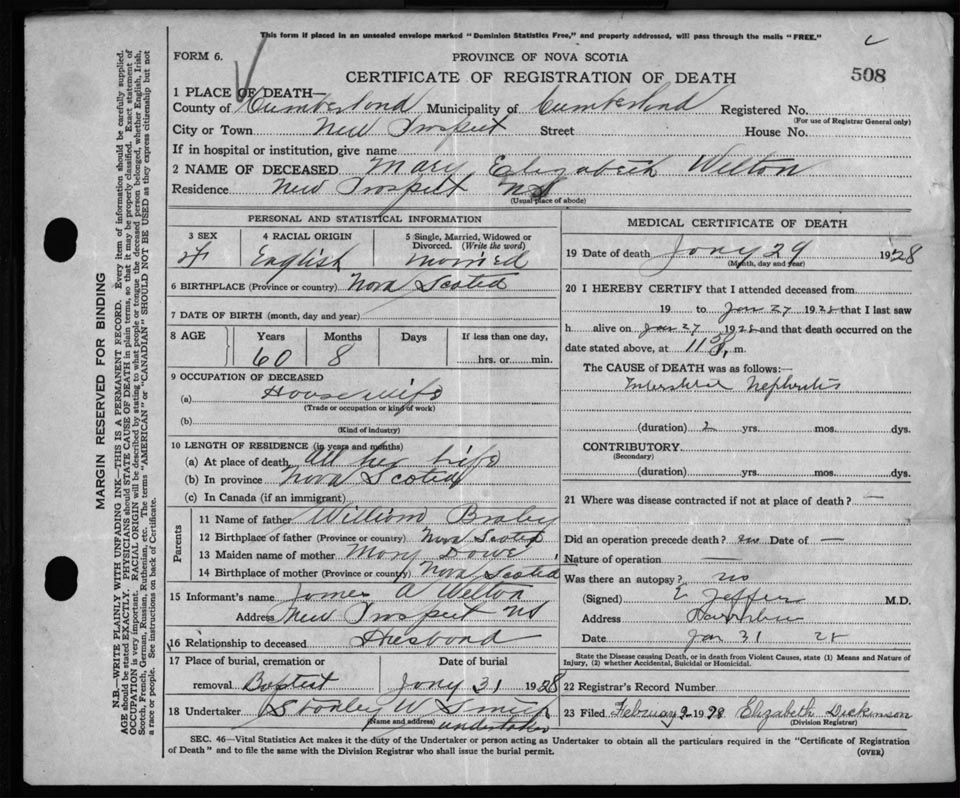 This form if placed in an unsealed envelope marked "Dominion Statistics Free," and property addressed, will pass through the mails "FREE."
FORM 6.
PROVINCE OF NOVA SCOTIA
CERTIFICATE OF REGISTRATION OF DEATH
508
1 PLACE OF DEATH—
County of Cumberland Municipality of Cumberland Registered No.
(For use of Registrar General only)
City or Town New Prospect Street House No.
If in hospital or institution, give name
2 NAME OF DECEASED Mary Elizabeth Welton
Residence New Prospect NS
(Usual place of abode)
PERSONAL AND STATISTICAL INFORMATION
3 SEX 4 RACIAL ORIGIN 5 Single, Married, Widowed or Divorced. (Write the word)
F English Married
6 BIRTHPLACE (Province or country) Nova Scotia
7 DATE OF BIRTH (month, day and year)
8 AGE Years Months Days If less than one day,
60 8 hrs. or min.
9 OCCUPATION OF DECEASED
(a) House wife
(Trade or occupation or kind of work)
(b)
(Kind of industry)
10 LENGTH OF RESIDENCE (in years and months)
(a) At place of death All her life
(b) In province Nova Scotia
(c) In Canada (if an immigrant)
Parents
11 Name of father William
12 Birthplace of father (Province or country) Nova Scotia
13 Maiden name of mother Mary
14 Birthplace of mother (Province or country) Nova Scotia
15 Informant's name James A Welton
Address New Prospect NS
16 Relationship to deceased Husband
17 Place of burial, cremation or removal Baptist
Date of burial Jany 31 1928
18 Undertaker W Smith
(Name and address) undertaker
MEDICAL CERTIFICATE OF DEATH
19 Date of death Jany 29 1928
(Month, day and year)
20 I HEREBY CERTIFY that I attended deceased from
19 to Jan 27 1928 that I last saw
h alive on Jan 27 1928 and that death occurred on
date stated above, at 11 m.
The CAUSE of DEATH was as follows:—
Interstitial Nephritis
(duration) 2 yrs. mos. dys.
CONTRIBUTORY
(Secondary)
(duration) yrs. mos. dys.
21 Where was disease contracted if not at place of death? —
Did an operation precede death? no Date of —
Nature of operation —
Was there an autopsy? no
(Signed) M.D.
Address
Date Jan 31 28
State the Disease causing Death, or in death from Violent Causes, state (1) Means and Nature of Injury, (2) whether Accidental, Suicidal or Homicidal.
22 Registrar's Record Number
23 Filed February 2 1928 Elizabeth Dickinson
(Division Registrar)
SEC. 46—Vital Statistics Act makes it the duty of the Undertaker or person acting as Undertaker to obtain all the particulars required in the "Certificate of Registration
of Death" and to file the same with the Division Registrar who shall issue the burial permit.
(OVER)
MARGIN RESERVED FOR BINDING
N.B.—WRITE PLAINLY WITH UNFADING INK—THIS IS A PERMANENT RECORD. Every item of information should be carefully supplied.
AGE should be stated EXACTLY. PHYSICIANS should STATE CAUSE OF DEATH in plain terms, so that it may be properly classified. Exact statement of
OCCUPATION is very important. RACIAL ORIGIN will be described by stating to what people or tongue the deceased person belonged, whether English, Irish,
Scotch, French, German, Russian, Ruthenian, etc. The terms "AMERICAN" or "CANADIAN" SHOULD NOT BE USED as they express citizenship but not
a race or people. See instructions on back of Certificate.